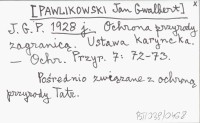 [PAWLIKOWSKI Jan Gwalbert]
J. G. P. 1928 j. Ochrona przyrody
zagranicą. Ustawa karyncka.
— Ochr. Przyr. 7: 72-73.
Pośrednio związane z ochroną
przyrody Tatr.